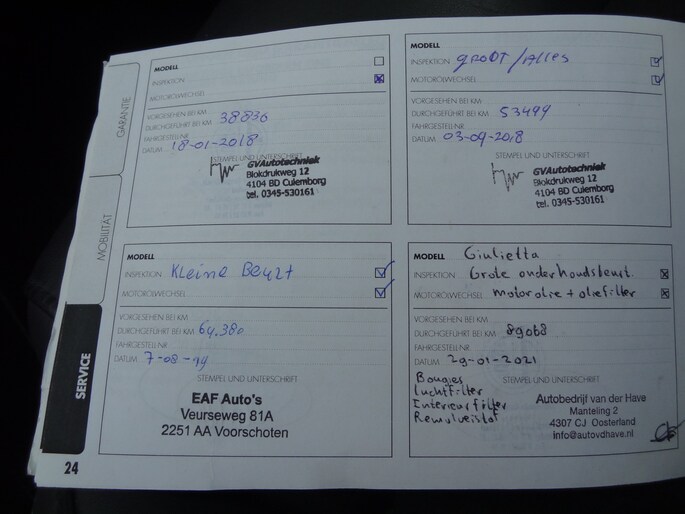 GARANTIE
MOBILITÄT
SERVICE
24
MODELL
INSPEKTION
MOTORÖLWECHSEL
VORGESEHEN BEI KM
DURCHGEFÜHRT BEI KM 38836
FAHRGESTELLNR.
DATUM 18-01-2018
STEMPEL UND UNTERSCHRIFT
GVAutotechniek
Blokdrukweg 12
4104 BD Culemborg
tel. 0345-530161
MODELL
INSPEKTION groot/Alles
MOTORÖLWECHSEL
VORGESEHEN BEI KM
DURCHGEFÜHRT BEI KM 53499
FAHRGESTELLNR.
DATUM 03-09-2018
STEMPEL UND UNTERSCHRIFT
GVAutotechniek
Blokdrukweg 12
4104 BD Culemborg
tel. 0345-530161
MODELL
INSPEKTION Kleine Beurt
MOTORÖLWECHSEL
VORGESEHEN BEI KM
DURCHGEFÜHRT BEI KM 64.380
FAHRGESTELLNR.
DATUM 7-08-19
STEMPEL UND UNTERSCHRIFT
EAF Auto's
Veurseweg 81A
2251 AA Voorschoten
MODELL Giulietta
INSPEKTION Grote onderhoudsbeurt.
MOTORÖLWECHSEL motorolie + oliefilter
VORGESEHEN BEI KM
DURCHGEFÜHRT BEI KM 89068
FAHRGESTELLNR.
DATUM 29-01-2021
STEMPEL UND UNTERSCHRIFT
Bougies
Luchtfilter
Interieurfilter
Remvloeistof
Autobedrijf van der Have
Manteling 2
4307 CJ Oosterland
info@autovdhave.nl